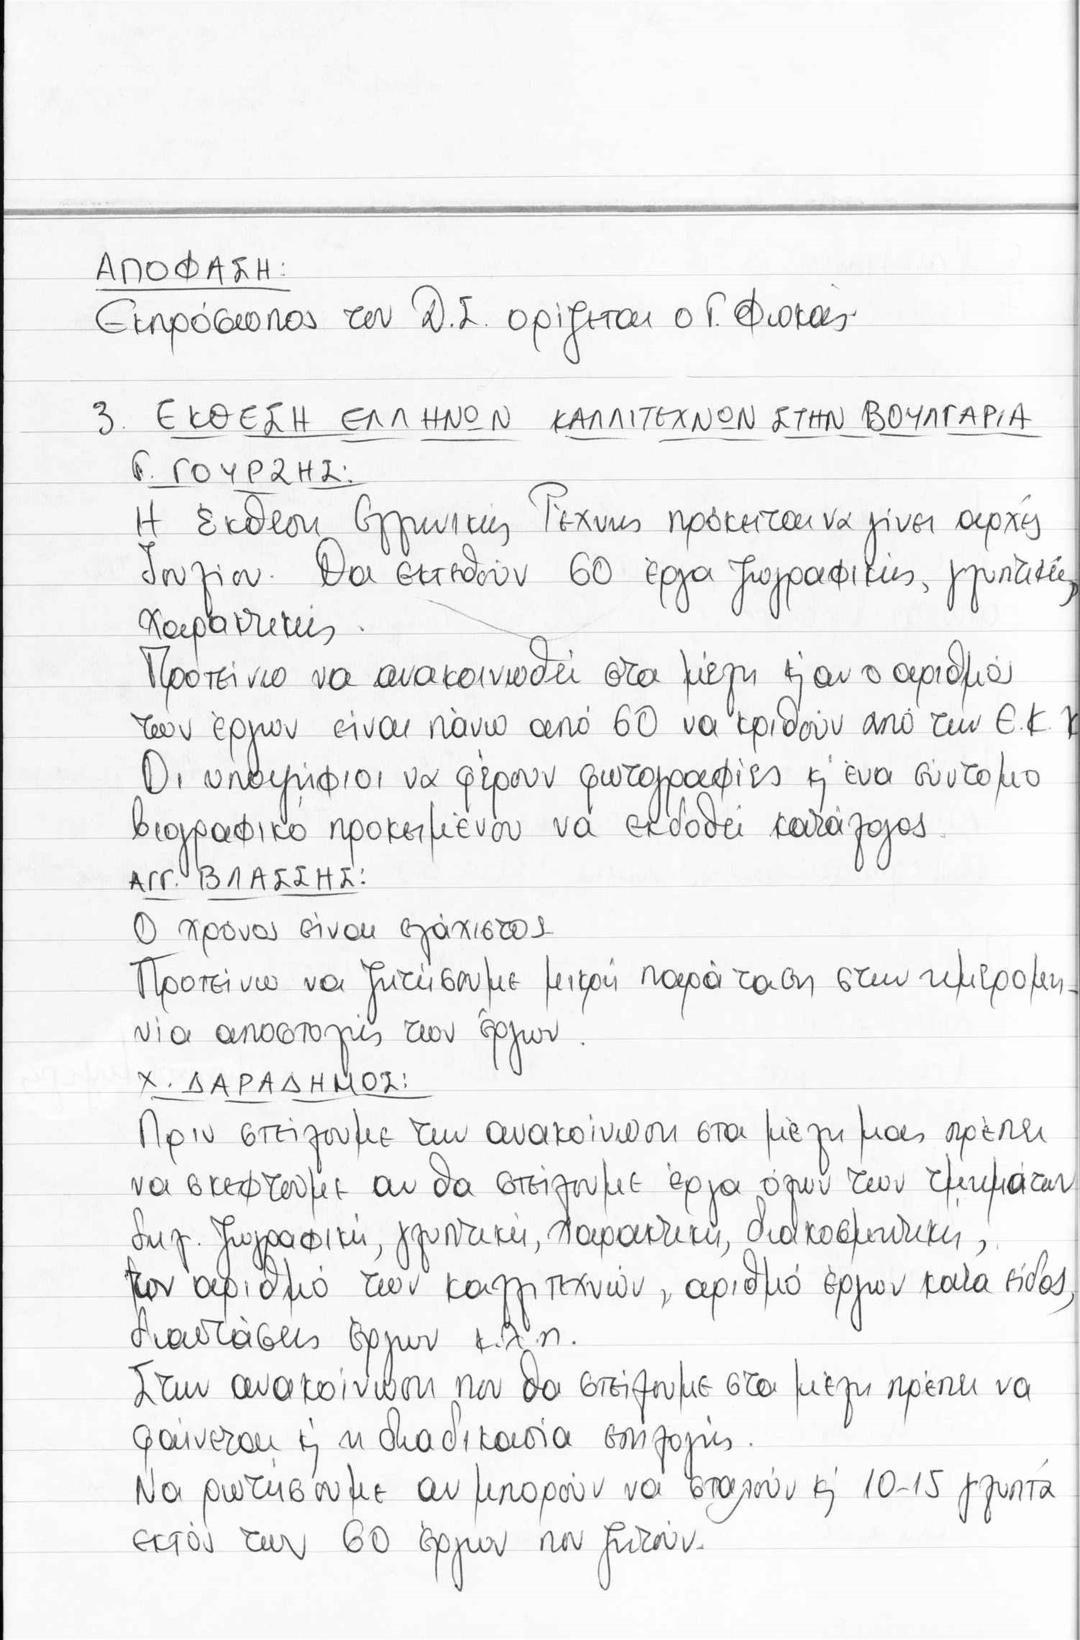 ΑΠΟΦΑΣΗ:
Εκπρόσωπος του Δ.Σ. ορίζεται ο Γ. Φωκάς
3. ΕΚΘΕΣΗ ΕΛΛΗΝΩΝ ΚΑΛΛΙΤΕΧΝΩΝ ΣΤΗΝ ΒΟΥΛΓΑΡΙΑ
Γ. ΓΟΥΡΖΗΣ:
Η έκθεση Ελληνικής Τέχνης πρόκειται να γίνει αρχές
Ιουλίου. Θα εκτεθούν 60 έργα ζωγραφικής, γλυπτικής,
χαρακτικής.
Προτείνω να ανακοινωθεί στα μέλη κ́ αν ο αριθμός
των έργων είναι πάνω από 60 να κριθούν από την Ε.Κ.Χ
Οι υποψήφιοι να φέρουν φωτογραφίες κ́ ένα σύντομο
βιογραφικό προκειμένου να εκδοθεί κατάλογος.
ΑΓΓ. ΒΛΑΣΣΗΣ:
Ο χρόνος είναι ελάχιστος
Προτείνω να ζητήσουμε μικρή παράταση στην ημερομη-
νία αποστολής των έργων.
Χ. ΔΑΡΑΔΗΜΟΣ:
Πριν στείλουμε την ανακοίνωση στα μέλη μας πρέπει
να σκεφτούμε αν θα στείλουμε έργα όλων των τμημάτων
δηλ. ζωγραφική, γλυπτική, χαρακτική, διακοσμητική,
τον αριθμό των καλλιτεχνών, αριθμό έργων κατά είδος,
διαστάσεις έργων κ.λ.π.
Στην ανακοίνωση που θα στείλουμε στα μέλη πρέπει να
φαίνεται κ́ η διαδικασία επιλογής.
Να ρωτήσουμε αν μπορούν να σταλούν κ́ 10-15 γλυπτά
εκτός των 60 έργων που ζητούν.